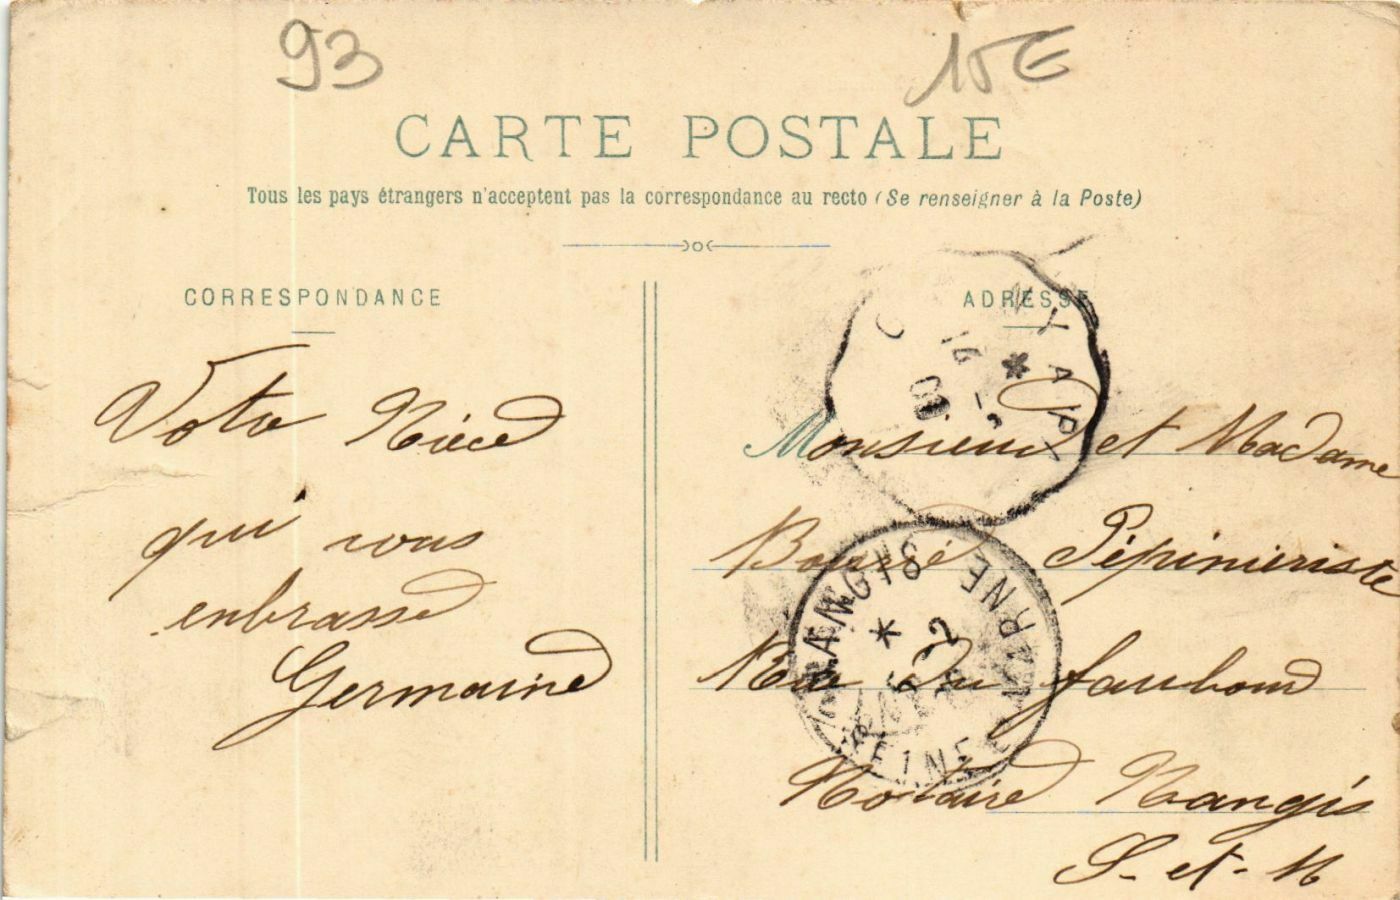 93
15€
CARTE POSTALE
Tous les pays étrangers n'acceptent pas la correspondance au recto (Se renseigner à la Poste)
CORRESPONDANCE
Votre Nièce
qui vous
enbrasse
Germaine
ADRESSE
Monsieur et Madame
Pépinieriste
Rue Du faubourd
Notaire Nangis
S-et-M
NANGIS
SEINE ET MARNE